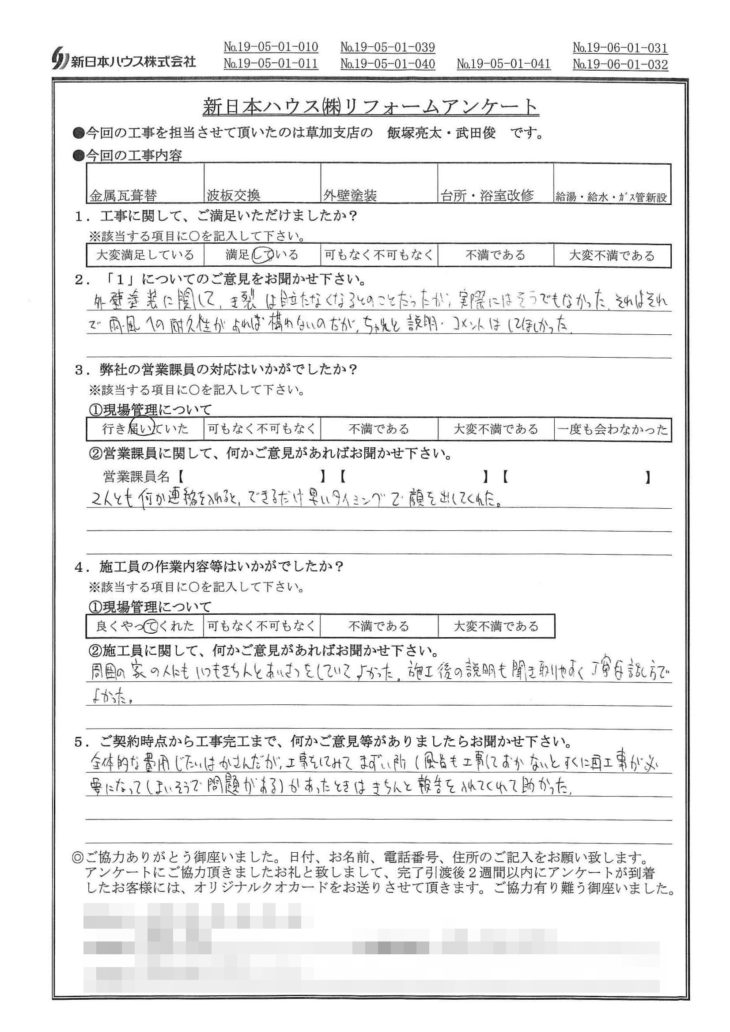 新日本ハウス株式会社
№19-05-01-010 №19-05-01-039 №19-06-01-031
№19-05-01-011 №19-05-01-040 №19-05-01-041 №19-06-01-032
新日本ハウス㈱リフォームアンケート
●今回の工事を担当させて頂いたのは草加支店の 飯塚亮太・武田俊 です。
●今回の工事内容
金属瓦葺替 波板交換 外壁塗装 台所・浴室改修 給湯・給水・ガス管新設
1．工事に関して、ご満足いただけましたか？
※該当する項目に○を記入して下さい。
大変満足している 満足している 可もなく不可もなく 不満である 大変不満である
2．「1」についてのご意見をお聞かせ下さい。
外壁塗装に関して、き裂は目立たなくなるとのことだったが、実際にはそうでもなかった。それはそれ
で雨・風への耐久性がよければ構わないのだが、ちゃんと説明・コメントはしてほしかった。
3．弊社の営業課員の対応はいかがでしたか？
※該当する項目に○を記入して下さい。
①現場管理について
行き届いていた 可もなく不可もなく 不満である 大変不満である 一度も会わなかった
②営業課員に関して、何かご意見があればお聞かせ下さい。
営業課員名【 】【 】【 】
2人とも何か連絡を入れると、できるだけ早いタイミングで顔を出してくれた。
4．施工員の作業内容等はいかがでしたか？
※該当する項目に○を記入して下さい。
①現場管理について
良くやってくれた 可もなく不可もなく 不満である 大変不満である
②施工員に関して、何かご意見があればお聞かせ下さい。
周囲の家の人にもいつもきちんとあいさつをしていてよかった。施工後の説明も聞き取りやすく丁寧な話し方で
よかった。
5．ご契約時点から工事完工まで、何かご意見等がありましたらお聞かせ下さい。
全体的な費用じたいはかさんだが、工事をしてみてまずい所(工事しておかないとすぐに再工事が必
要になってしまいそうで問題がある)があったときはきちんと報告を入れてくれて助かった。
◎ご協力ありがとう御座いました。日付、お名前、電話番号、住所のご記入をお願い致します。
アンケートにご協力頂きましたお礼と致しまして、完了引渡後2週間以内にアンケートが到着
したお客様には、オリジナルクオカードをお送りさせて頂きます。ご協力有り難う御座いました。